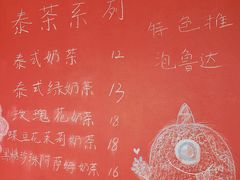 泰茶系列
泰式奶茶 12
泰式绿奶茶 13
玫瑰花奶茶 18
豆花茉莉奶茶 18
奶茶 16
特色推
泡鲁达